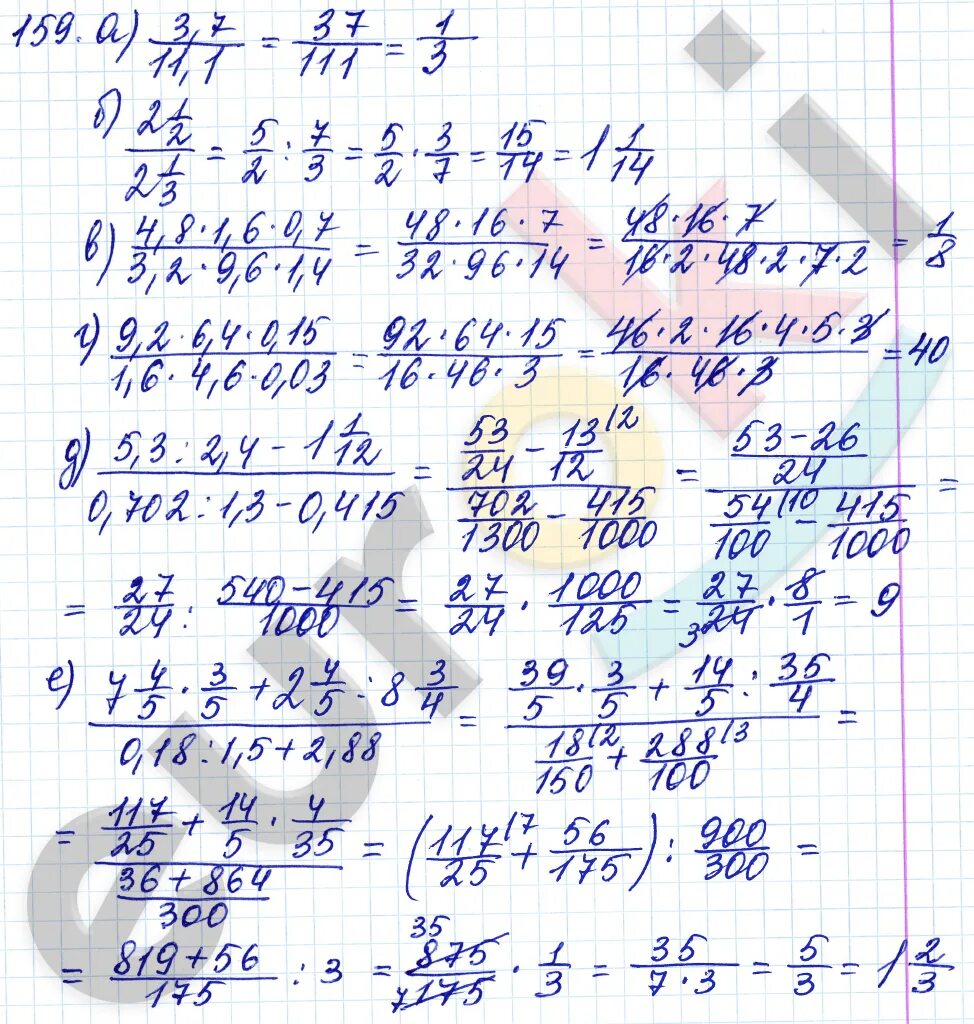 159. а) 3,7/11,1 = 37/111 = 1/3
б) 2 1/2 / 2 1/3 = 5/2 : 7/3 = 5/2 · 3/7 = 15/14 = 1 1/14
в) 4,8·1,6·0,7 / 3,2·9,6·1,4 = 48·16·7 / 32·96·14 = 48·16·7 / 16·2·48·2·7·2 = 1/8
г) 9,2·6,4·0,15 / 1,6·4,6·0,03 = 92·64·15 / 16·46·3 = 46·2·16·4·5·3 / 16·46·3 = 40
д) 5,3 : 2,4 − 1 1/12 / 0,702 : 1,3 − 0,415 = 53/24 − 13/12 |2 / 702/1300 − 415/1000 = 53−26/24 / 54/100 |10 − 415/1000 =
= 27/24 : 540−415/1000 = 27/24 · 1000/125 = 27/24 3 · 8/1 = 9
е) 7 4/5 · 3/5 + 2 4/5 : 8 3/4 / 0,18 : 1,5 + 2,88 = 39/5 · 3/5 + 14/5 : 35/4 / 18/150 |2 + 288/100 |3 =
= 117/25 + 14/5 · 4/35 / 36+864/300 = (117/25 |7 + 56/175) : 900/300 =
= 819+56/175 : 3 = 35 875/175 7 · 1/3 = 35/7·3 = 5/3 = 1 2/3
euroki